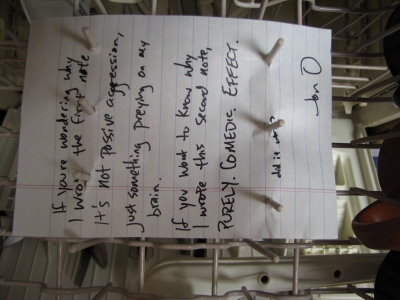 If you're wondering why
I wrote the first note
It's not passive aggression,
just something preying on my
brain.
If you want to know why
I wrote this second note,
PURELY. COMEDIC. EFFECT.
did it work?
Jon O